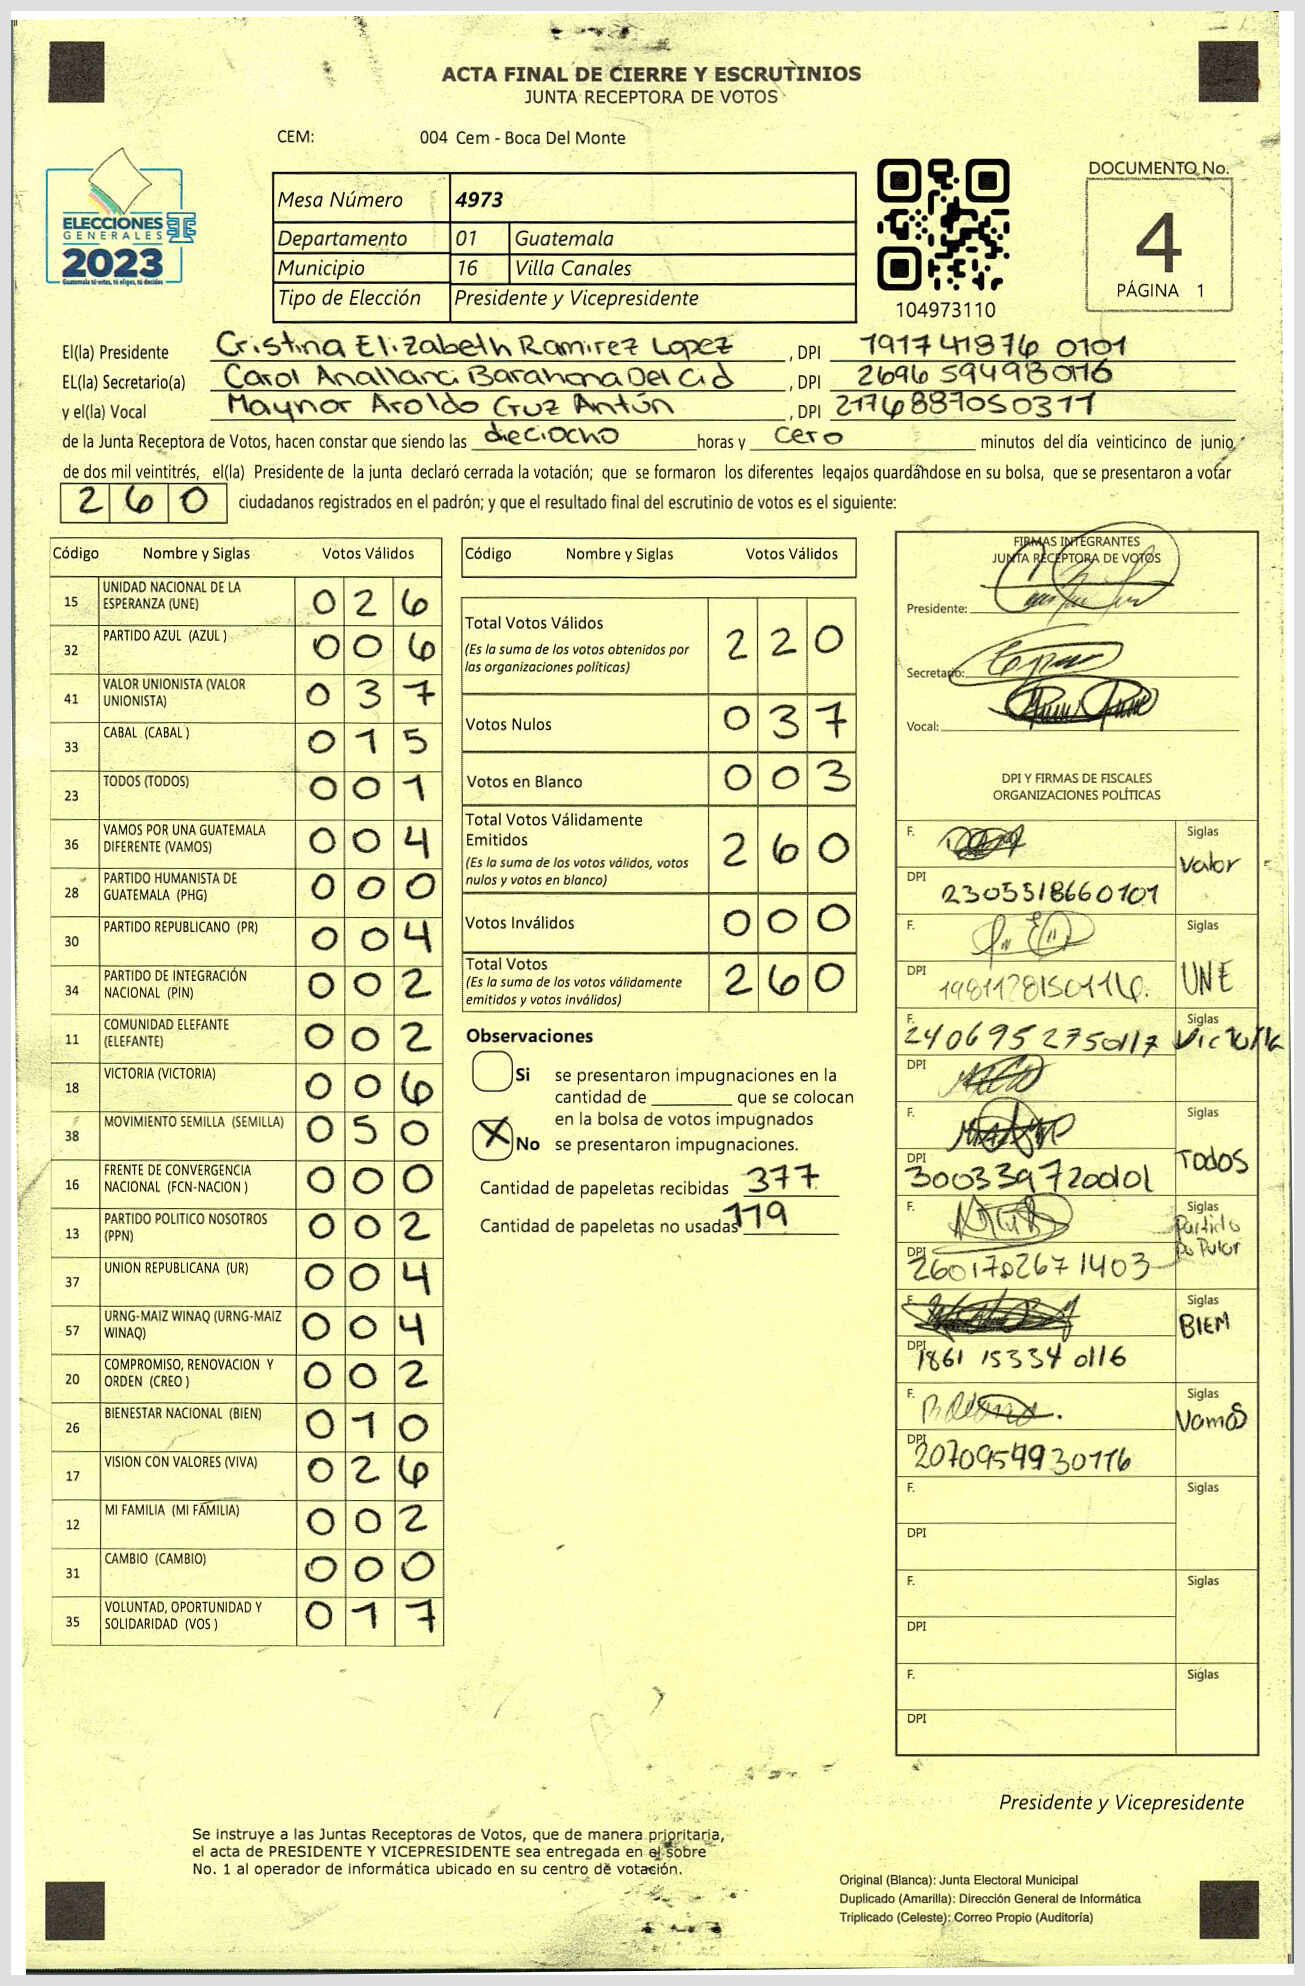 ACTA FINAL DE CIERRE Y ESCRUTINIOS
JUNTA RECEPTORA DE VOTOS
CEM: 004 Cem - Boca Del Monte
ELECCIONES
GENERALES
2023
Guatemala tú votas, tú eliges, tú decides
Mesa Número 4973
Departamento 01 Guatemala
Municipio 16 Villa Canales
Tipo de Elección Presidente y Vicepresidente
104973110
DOCUMENTO No.
4
PÁGINA 1
El(la) Presidente Cristina Elizabeth Ramirez Lopez , DPI 191741876 0101
EL(la) Secretario(a) Carol Barahona Del Cid , DPI 2696 59498 0116
y el(la) Vocal Maynor Aroldo Cruz Antún , DPI 2176887050311
de la Junta Receptora de Votos, hacen constar que siendo las dieciocho horas y cero minutos del día veinticinco de junio
de dos mil veintitrés, el(la) Presidente de la junta declaró cerrada la votación; que se formaron los diferentes legajos guardándose en su bolsa, que se presentaron a votar
260 ciudadanos registrados en el padrón; y que el resultado final del escrutinio de votos es el siguiente:
Código Nombre y Siglas Votos Válidos
15 UNIDAD NACIONAL DE LA ESPERANZA (UNE) 026
32 PARTIDO AZUL (AZUL ) 006
41 VALOR UNIONISTA (VALOR UNIONISTA) 037
33 CABAL (CABAL ) 015
23 TODOS (TODOS) 001
36 VAMOS POR UNA GUATEMALA DIFERENTE (VAMOS) 004
28 PARTIDO HUMANISTA DE GUATEMALA (PHG) 000
30 PARTIDO REPUBLICANO (PR) 004
34 PARTIDO DE INTEGRACIÓN NACIONAL (PIN) 002
11 COMUNIDAD ELEFANTE (ELEFANTE) 002
18 VICTORIA (VICTORIA) 006
38 MOVIMIENTO SEMILLA (SEMILLA) 050
16 FRENTE DE CONVERGENCIA NACIONAL (FCN-NACION ) 000
13 PARTIDO POLITICO NOSOTROS (PPN) 002
37 UNION REPUBLICANA (UR) 004
57 URNG-MAIZ WINAQ (URNG-MAIZ WINAQ) 004
20 COMPROMISO, RENOVACION Y ORDEN (CREO ) 002
26 BIENESTAR NACIONAL (BIEN) 010
17 VISION CON VALORES (VIVA) 026
12 MI FAMILIA (MI FAMILIA) 002
31 CAMBIO (CAMBIO) 000
35 VOLUNTAD, OPORTUNIDAD Y SOLIDARIDAD (VOS ) 017
Código Nombre y Siglas Votos Válidos
Total Votos Válidos 220
(Es la suma de los votos obtenidos por
las organizaciones políticas)
Votos Nulos 037
Votos en Blanco 003
Total Votos Válidamente
Emitidos 260
(Es la suma de los votos válidos, votos
nulos y votos en blanco)
Votos Inválidos 000
Total Votos 260
(Es la suma de los votos válidamente
emitidos y votos inválidos)
Observaciones
Si se presentaron impugnaciones en la
cantidad de ________ que se colocan
en la bolsa de votos impugnados
X No se presentaron impugnaciones.
Cantidad de papeletas recibidas 377
Cantidad de papeletas no usadas 119
FIRMAS INTEGRANTES
JUNTA RECEPTORA DE VOTOS
Presidente:
Secretario:
Vocal:
DPI Y FIRMAS DE FISCALES
ORGANIZACIONES POLÍTICAS
F. Siglas
Valor
DPI 2305518660101
F. Siglas
UNE
DPI
F. Siglas
2406952750117 Victoria
DPI
F. Siglas
Todos
DPI 3003397200101
F. Siglas
Partido
Populor
DPI 2601782671403
F. Siglas
BIEM
DPI 1861 15334 0116
F. Siglas
Vamos
DPI 2070959930116
F. Siglas
DPI
F. Siglas
DPI
F. Siglas
DPI
Presidente y Vicepresidente
Se instruye a las Juntas Receptoras de Votos, que de manera prioritaria,
el acta de PRESIDENTE Y VICEPRESIDENTE sea entregada en el sobre
No. 1 al operador de informática ubicado en su centro de votación.
Original (Blanca): Junta Electoral Municipal
Duplicado (Amarilla): Dirección General de Informática
Triplicado (Celeste): Correo Propio (Auditoría)